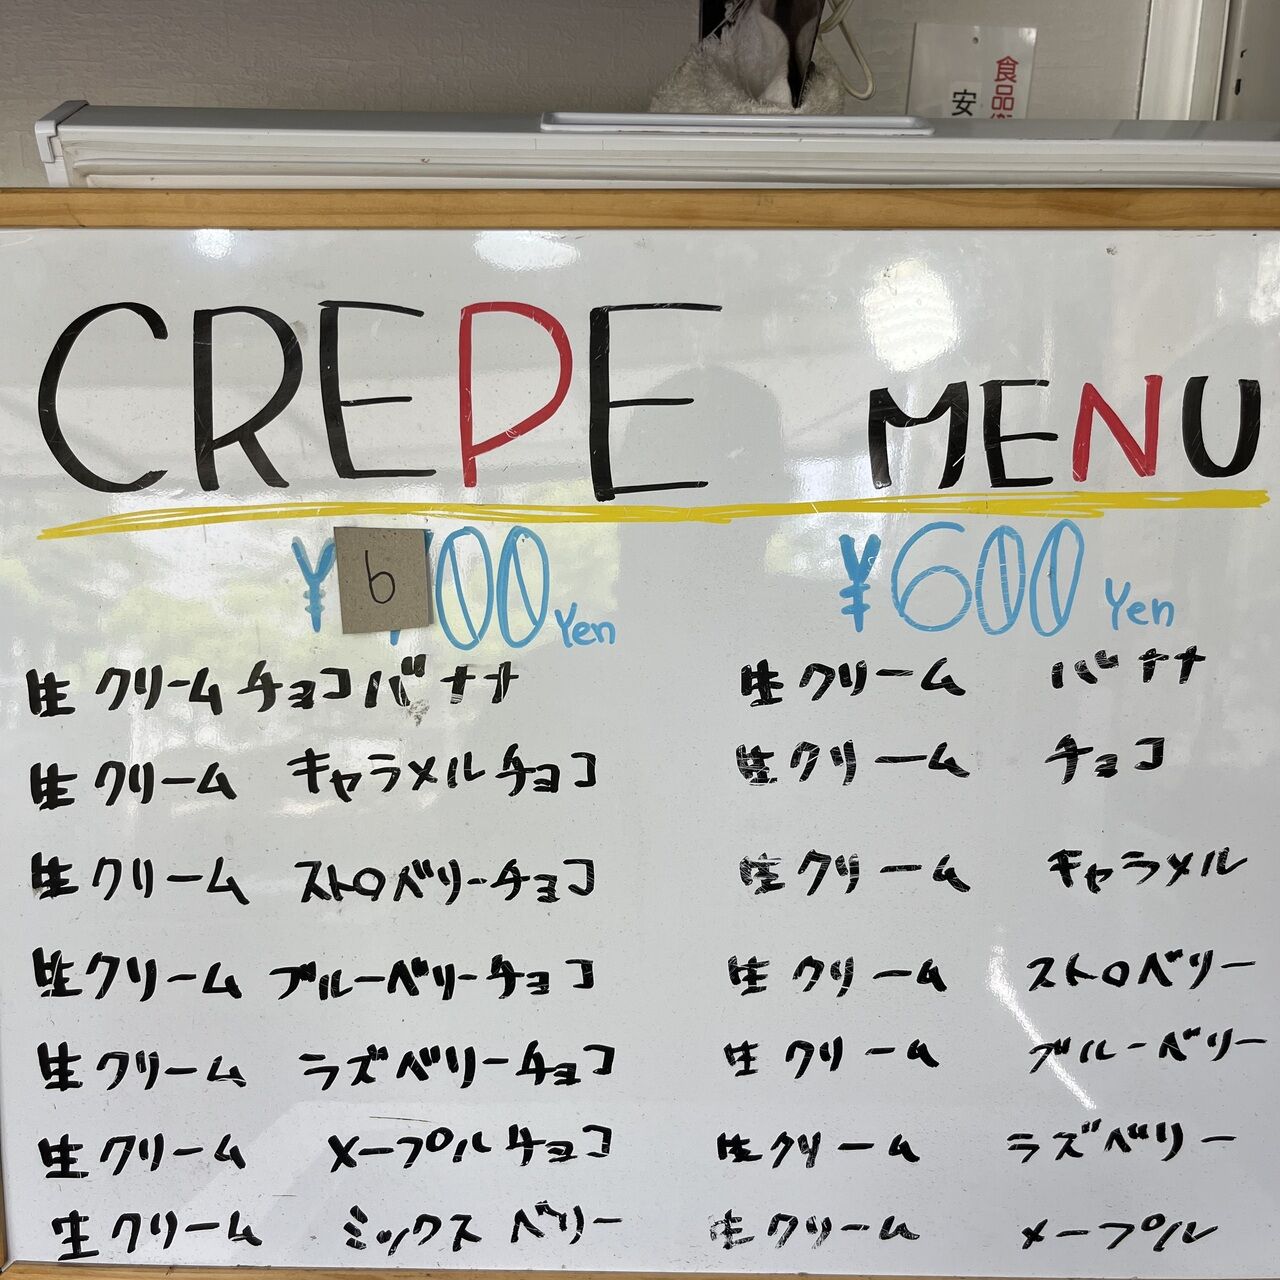 食品衛
安
CREPE MENU
¥600 Yen
¥600 Yen
生クリームチョコバナナ
生クリーム キャラメルチョコ
生クリーム ストロベリーチョコ
生クリーム ブルーベリーチョコ
生クリーム ラズベリーチョコ
生クリーム メープルチョコ
生クリーム ミックスベリー
生クリーム バナナ
生クリーム チョコ
生クリーム キャラメル
生クリーム ストロベリー
生クリーム ブルーベリー
生クリーム ラズベリー
生クリーム メープル